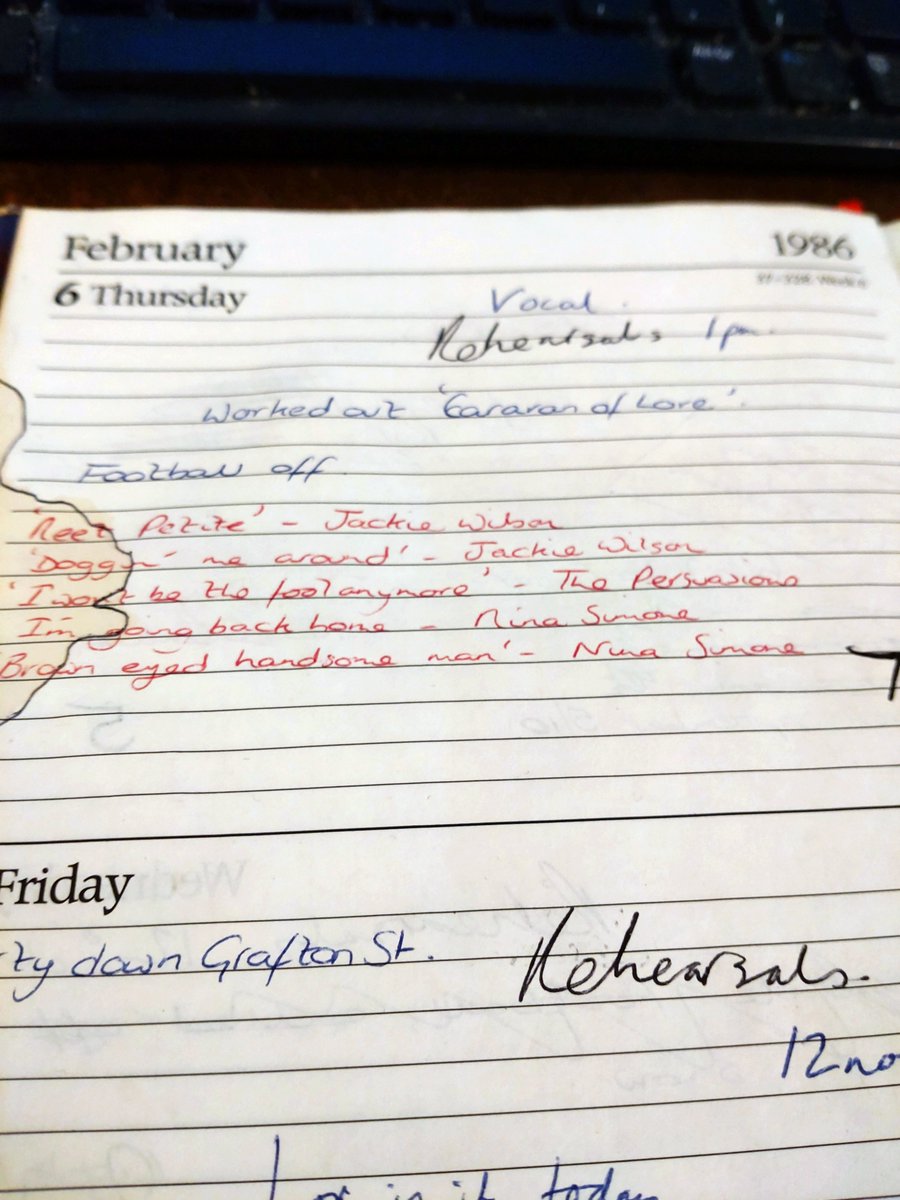 February 1986
6 Thursday
Vocal.
Rehearsals 1pm.
Worked out 'Caravan of Love'.
Football off
'Reet Petite' - Jackie Wilson
'Doggin' me around' - Jackie Wilson
'I won't be the fool anymore' - The Persuasions
I'm going back home - Nina Simone
Brown eyed handsome man' - Nina Simone
Friday
ty down Grafton St. Rehearsals.
12no
in it today